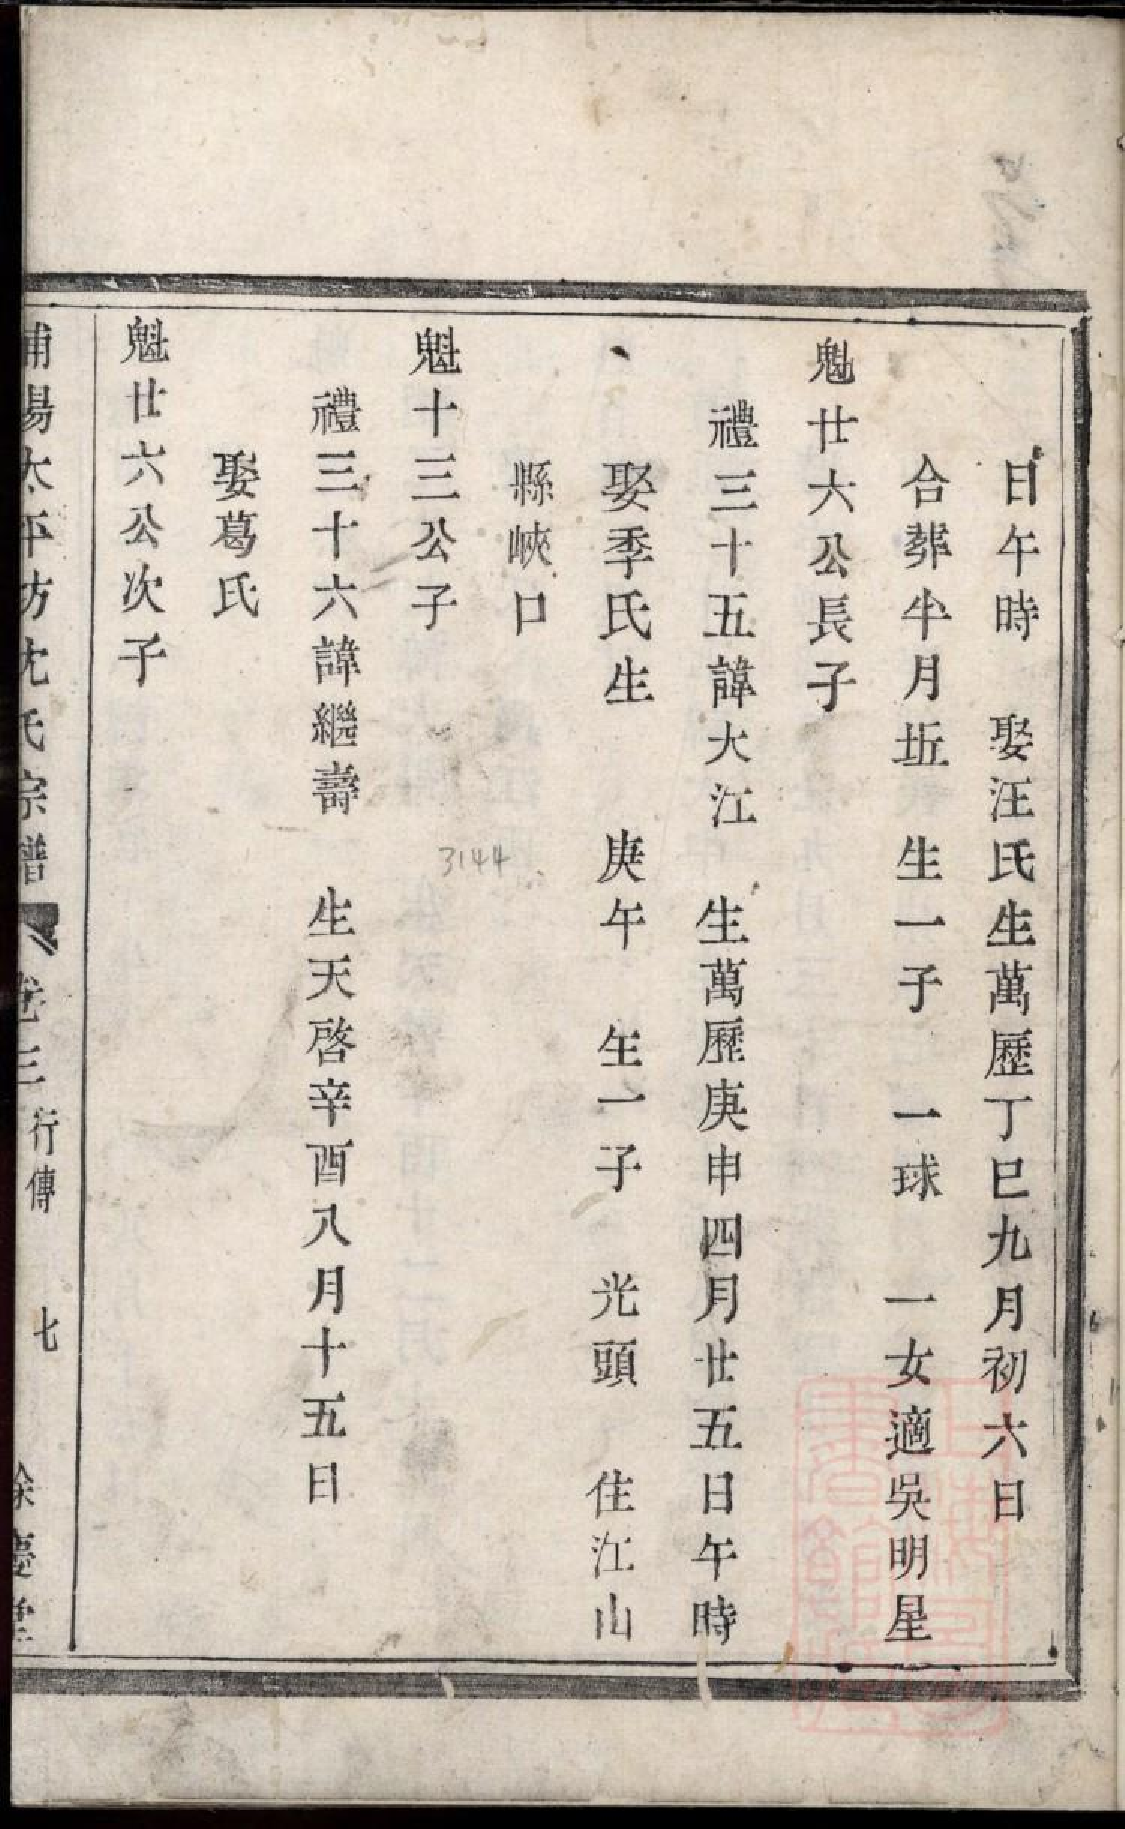 日午時　娶汪氏生萬歷丁巳九月初六日
合葬半月坵　生一子　一球　一女適吳明星
魁廿六公長子
禮三十五諱大江　生萬歷庚申四月廿五日午時
娶季氏生　庚午　生一子　光頭　住江山
縣峽口
魁十三公子
禮三十六諱繼壽　生天啓辛酉八月十五日
娶葛氏
魁廿六公次子
浦陽太平坊沈氏宗譜　卷三　行傳　七　餘慶堂
3144